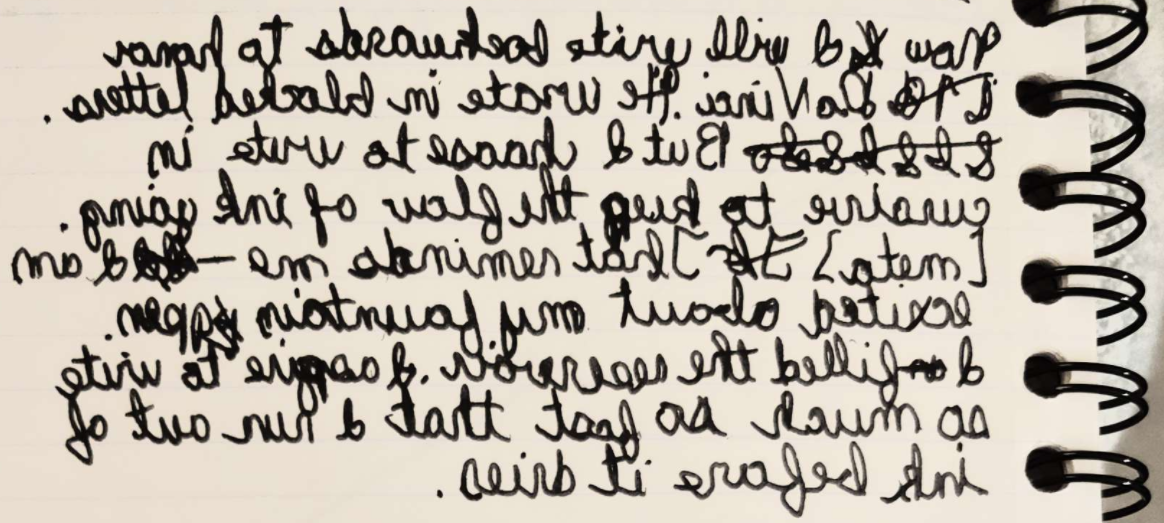 Now I will write backwards to honor
DaVinci. He wrote in blocked letters.
But I choose to write in
cursive to keep the flow of ink going.
[meta] That reminds me — I am
excited about my fountain pen.
I filled the reservoir. I aspire to write
so much so fast that I run out of
ink before it dries.